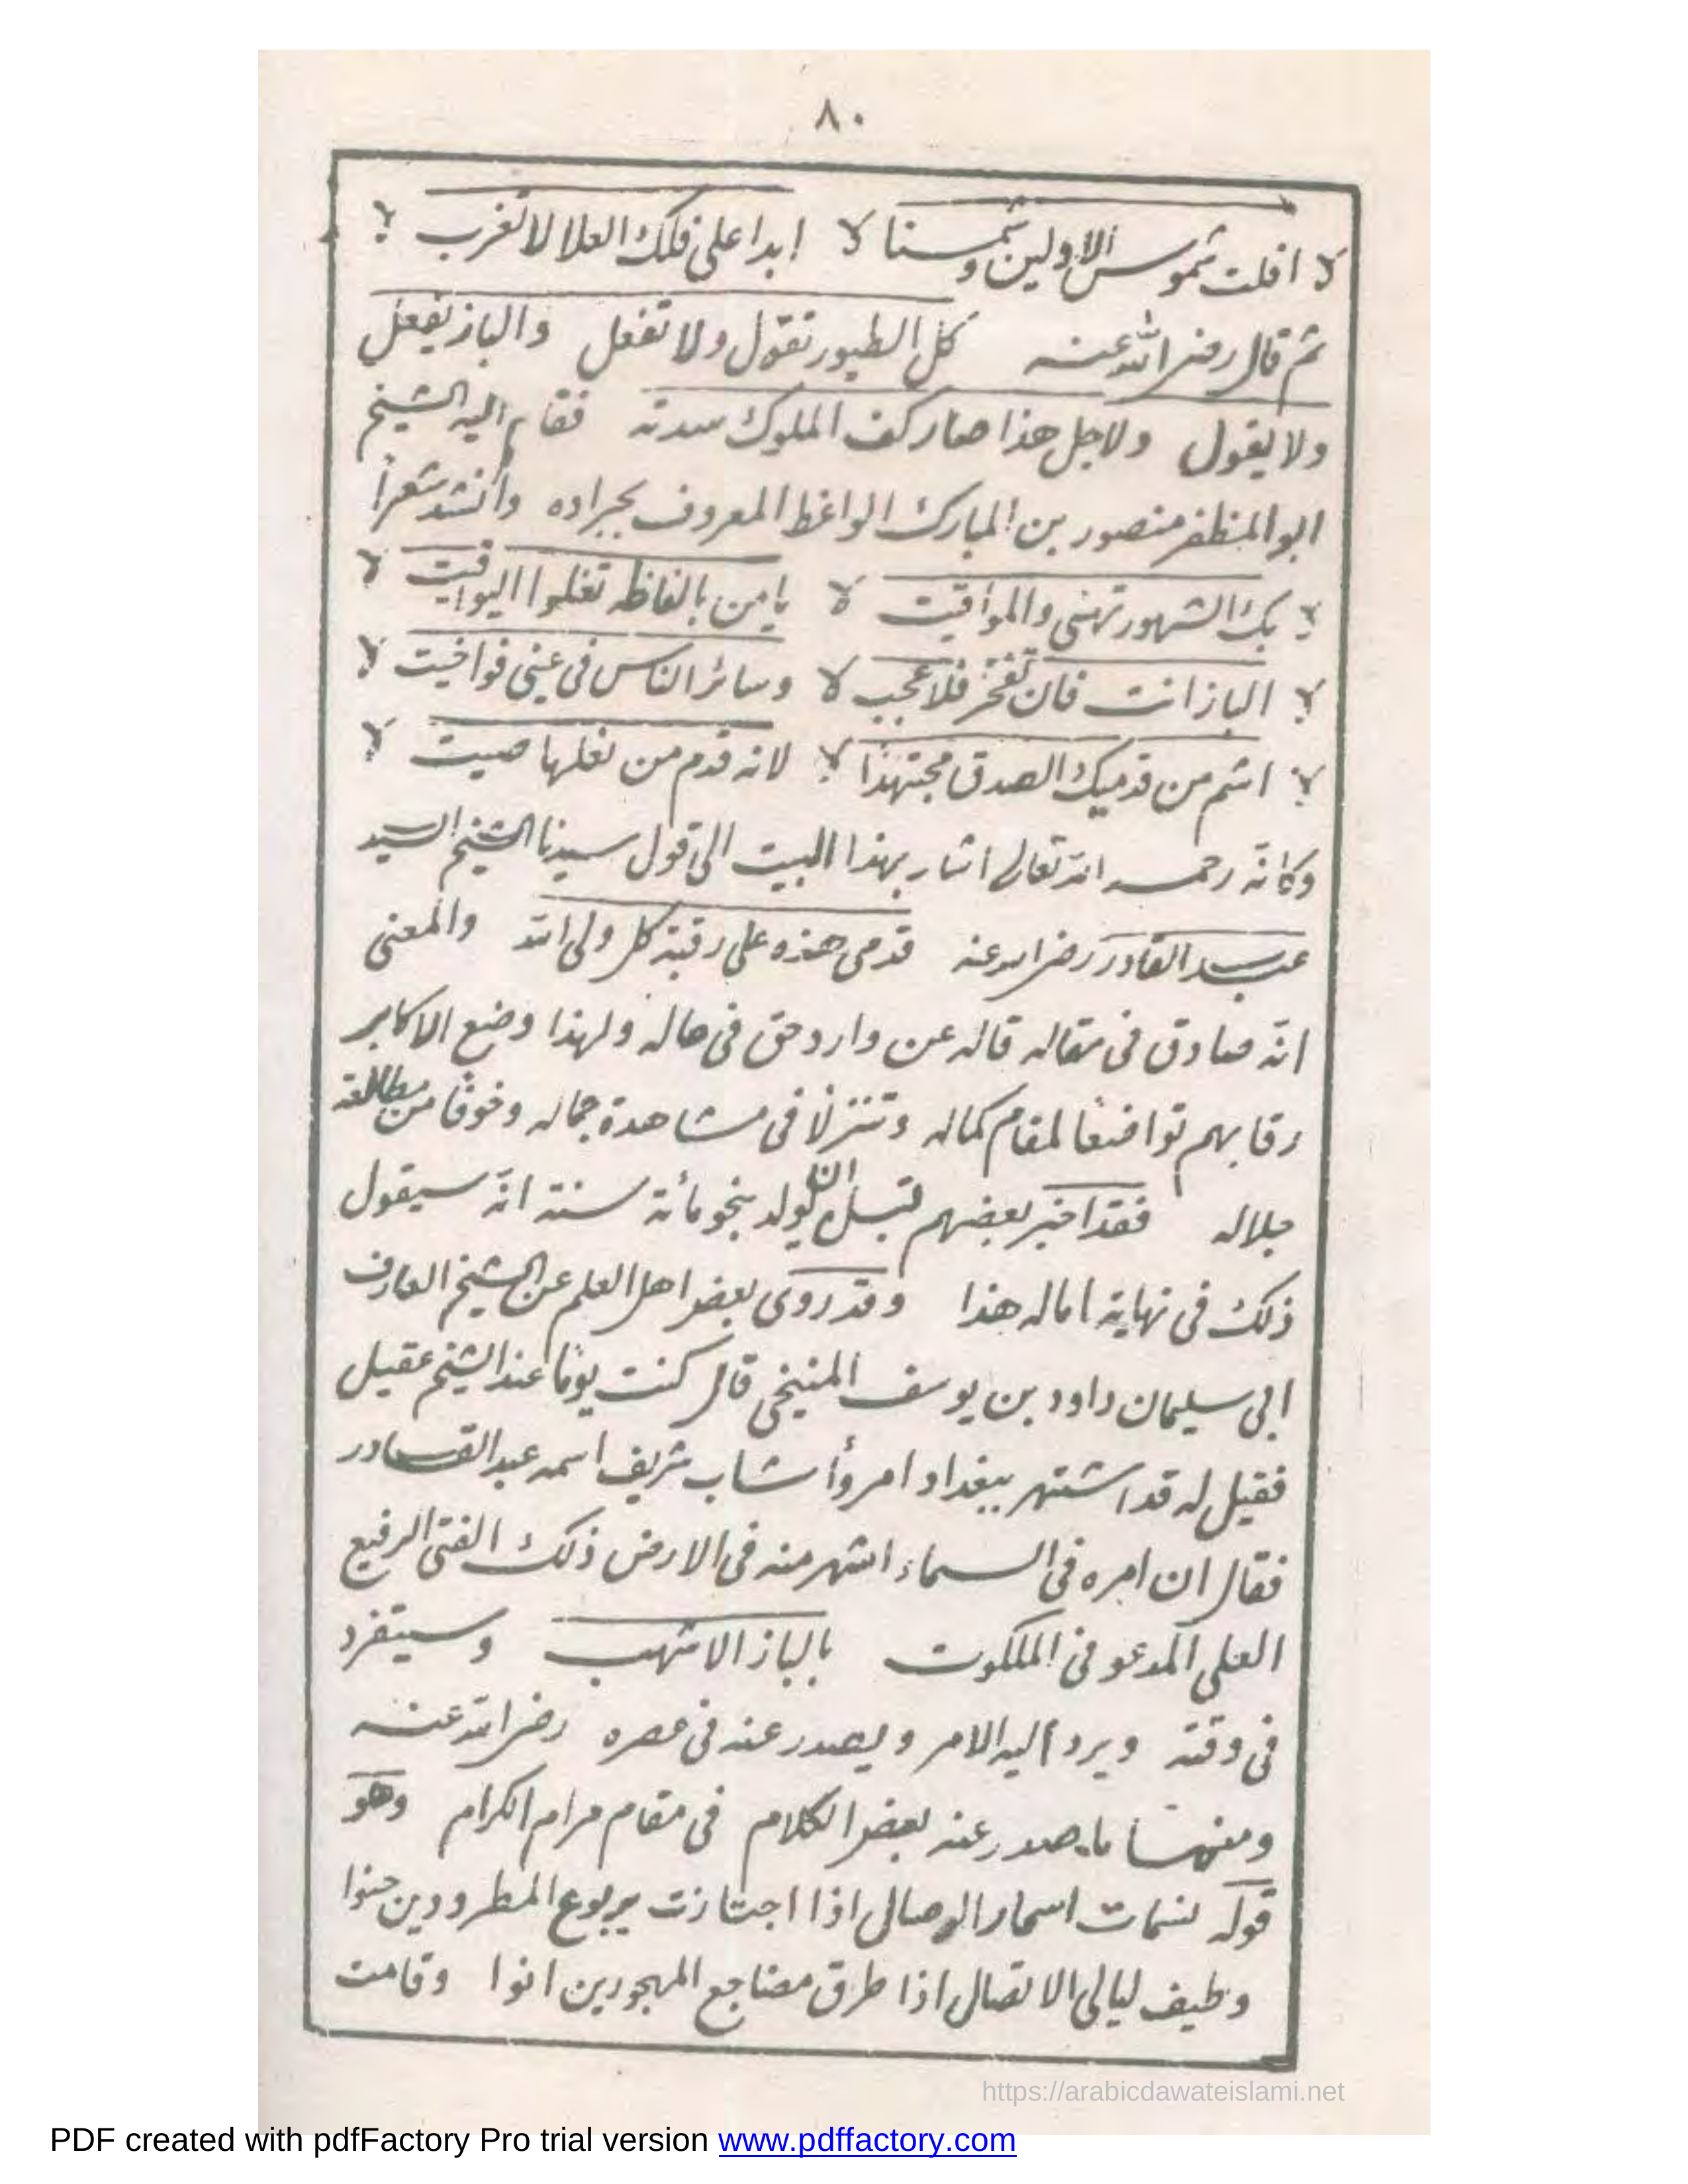 ٨٠
افلت شموس الاولين وشمسنا ابدا على فلك العلا لا تغرب
ثم قال رضى الله عنه كل الطيور تقول ولا تفعل والباز يفعل
ولا يقول ولاجل هذا صار كف الملوك سدته فقام اليه الشيخ
ابو المظفر منصور بن المبارك الواعظ المعروف بجراده وأنشد شعراً
بك الشهور تهنى والمواقيت يا من بالفاظه تغلوا اليواقيت
الباز انت فان تفخر فلا عجب وسائر الناس فى عينى فواخيت
اشم من قدميك الصدق مجتهدًا لانه قدم من نعلها صيت
وكانّه رحمه الله تعالى اشار بهذا البيت الى قول سيدنا الشيخ السيد
عبد القادر رضى الله عنه قدمى هذه على رقبة كل ولى الله والمعنى
انّه صادق فى مقاله قاله عن وارد حق فى حاله ولهذا وضع الاكابر
رقابهم تواضعًا لمقام كماله وتنزلًا فى مشاهدة جماله وخوفًا من مطالعة
جلاله فقد اخبر بعضهم قبل ان يولد بنحو مائة سنة انّه سيقول
ذلك فى نهاية اماله هذا وقد روى بعض اهل العلم عن الشيخ العارف
ابى سليمان داود بن يوسف المنيخى قال كنت يومًا عند الشيخ عقيل
فقيل له قد اشتهر ببغداد امر وأ شاب شريف اسمه عبد القادر
فقال ان امره فى السماء اشهر منه فى الارض ذلك الفتى الرفيع
العلى المدعو فى الملكوت بالباز الاشهب وسيتفرد
فى وقته ويرد اليه الامر ويصدر عنه فى عصره رضى الله عنه
ومنها ما صدر عنه بعض الكلام فى مقام مرام الكرام وهو
قوله نسمات اسحار الوصال اذا اجتازت بربوع المطرودين حنوا
وطيف ليالى الاتصال اذا طرق مضاجع المهجورين انوا وقامت
https://arabicdawateislami.net
PDF created with pdfFactory Pro trial version www.pdffactory.com